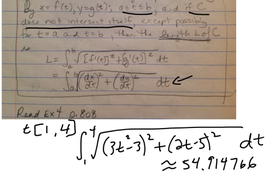 by x=f(t), y=g(t); a≤t≤b, and if C
does not intersect itself, except possibly
for t=a and t=b, then the length L of C
is
L = ∫ₐᵇ √([f'(t)]² + [g'(t)]²) dt
= ∫ₐᵇ √((dx/dt)² + (dy/dt)²) dt ←
Read Ex 4 p.808
t[1,4] ∫₁⁴ √((3t²-3)² + (2t-5)²) dt
≈ 54.114766